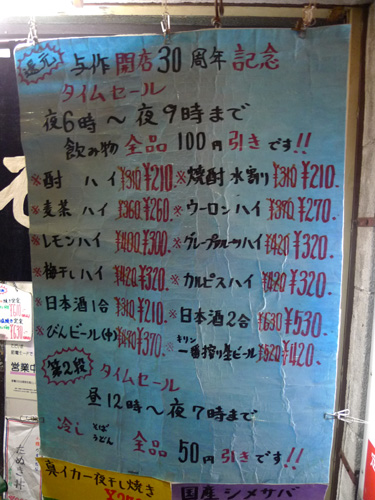 還元
与作開店30周年記念
タイムセール
夜6時～夜9時まで
飲み物 全品 100円引きです!!
※酎 ハイ ¥310 ¥210.
※焼酎水割り ¥310 ¥210.
※麦茶 ハイ ¥360 ¥260.
※ウーロンハイ ¥370 ¥270.
※レモンハイ ¥400 ¥300.
※グレープフルーツハイ ¥420 ¥320
※梅干しハイ ¥420 ¥320
※カルピスハイ ¥420 ¥320.
※日本酒1合 ¥310 ¥210.
※日本酒2合 ¥630 ¥530.
※びんビール(中) ¥470 ¥370.
※キリン一番搾り生ビール ¥520 ¥420.
第2段 タイムセール
昼12時～夜7時まで
冷し そば うどん 全品 50円引きです!!
真イカ一夜干し焼き
国産シメサバ
営業中
たぬき